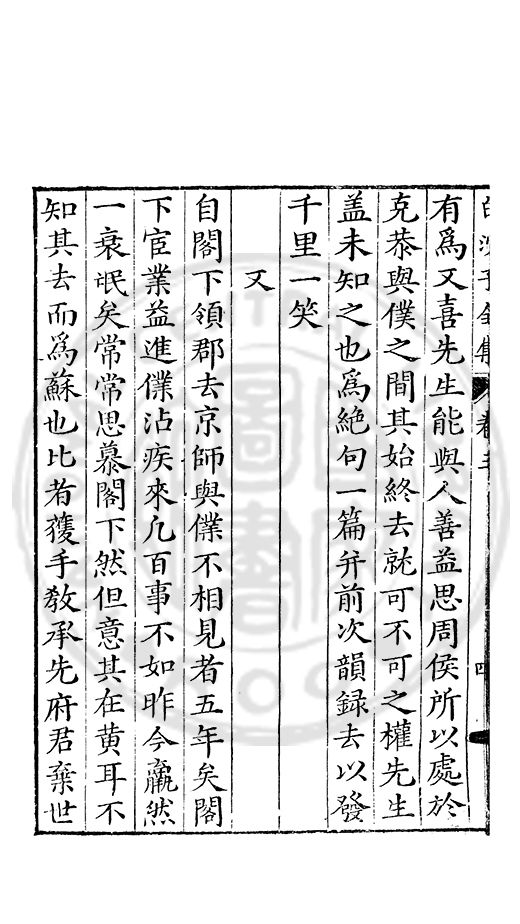 白沙子全集 卷三 四
有為又喜先生能與人善益思周侯所以處於
克恭與僕之間其始終去就可不可之權先生
盖未知之也為絶句一篇并前次韻録去以發
千里一笑
又
自閣下領郡去京師與僕不相見者五年矣閣
下宦業益進僕沾疾來凢百事不如昨今羸然
一衰氓矣常常思慕閣下然但意其在黄耳不
知其去而為蘇也比者獲手教承先府君棄世